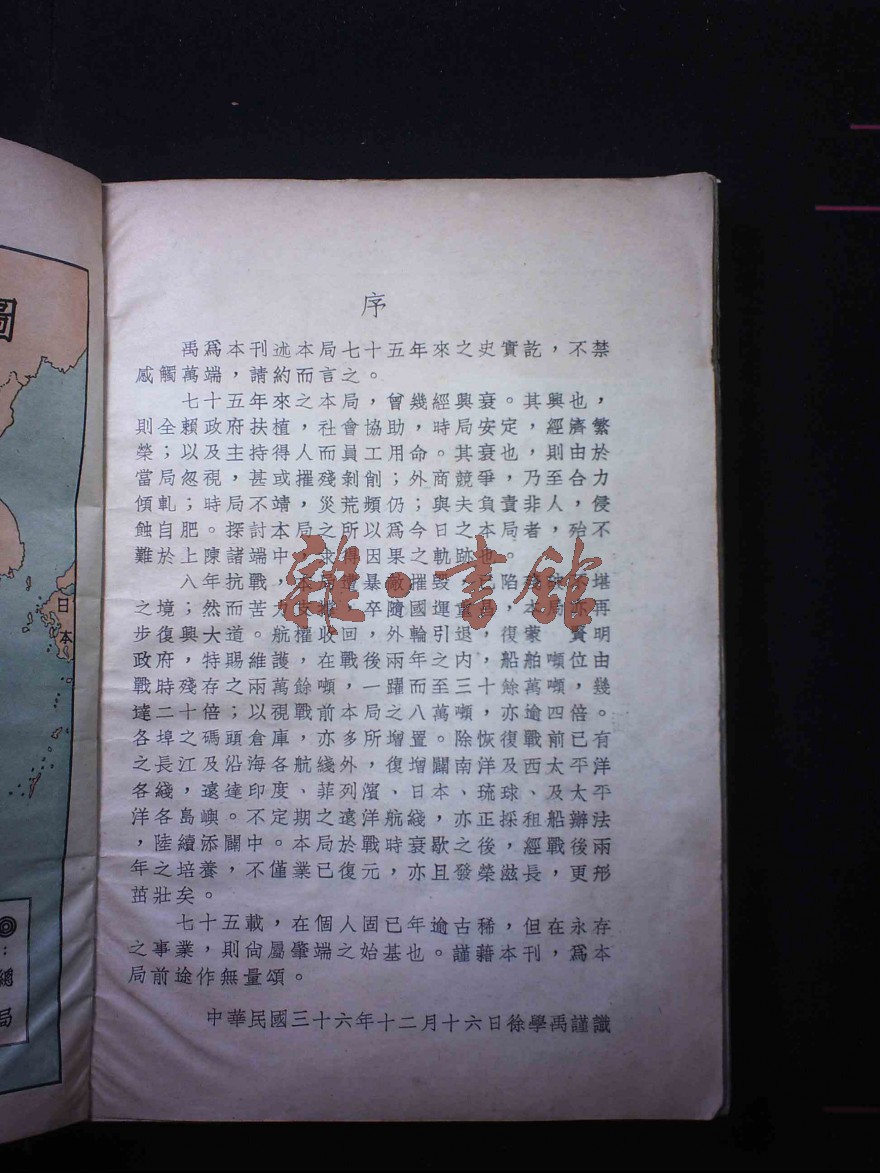 序
禹爲本刊述本局七十五年來之史實訖，不禁
感觸萬端，請約而言之。
七十五年來之本局，曾幾經興衰。其興也，
則全賴政府扶植，社會協助，時局安定，經濟繁
榮；以及主持得人而員工用命。其衰也，則由於
當局忽視，甚或摧殘剝削；外商競爭，乃至合力
傾軋；時局不靖，災荒頻仍；與夫負責非人，侵
蝕自肥。探討本局之所以爲今日之本局者，殆不
難於上陳諸端中，求得因果之軌跡也。
八年抗戰，本局遭暴敵摧毀，已陷殘破不堪
之境；然而苦力支撐，卒隨國運重，本局亦再
步復興大道。航權收回，外輪引退，復蒙　賢明
政府，特賜維護，在戰後兩年之內，船舶噸位由
戰時殘存之兩萬餘噸，一躍而至三十餘萬噸，幾
達二十倍；以視戰前本局之八萬噸，亦逾四倍。
各埠之碼頭倉庫，亦多所增置。除恢復戰前已有
之長江及沿海各航綫外，復增闢南洋及西太平洋
各綫，遠達印度、菲列濱、日本、琉球、及太平
洋各島嶼。不定期之遠洋航綫，亦正採租船辦法
，陸續添闢中。本局於戰時衰歇之後，經戰後兩
年之培養，不僅業已復元，亦且發榮滋長，更形
茁壯矣。
七十五載，在個人固已年逾古稀，但在永存
之事業，則尙屬肇端之始基也。謹藉本刊，爲本
局前途作無量頌。
中華民國三十六年十二月十六日徐學禹謹識
圖
日本
：
總
局
雜·書館